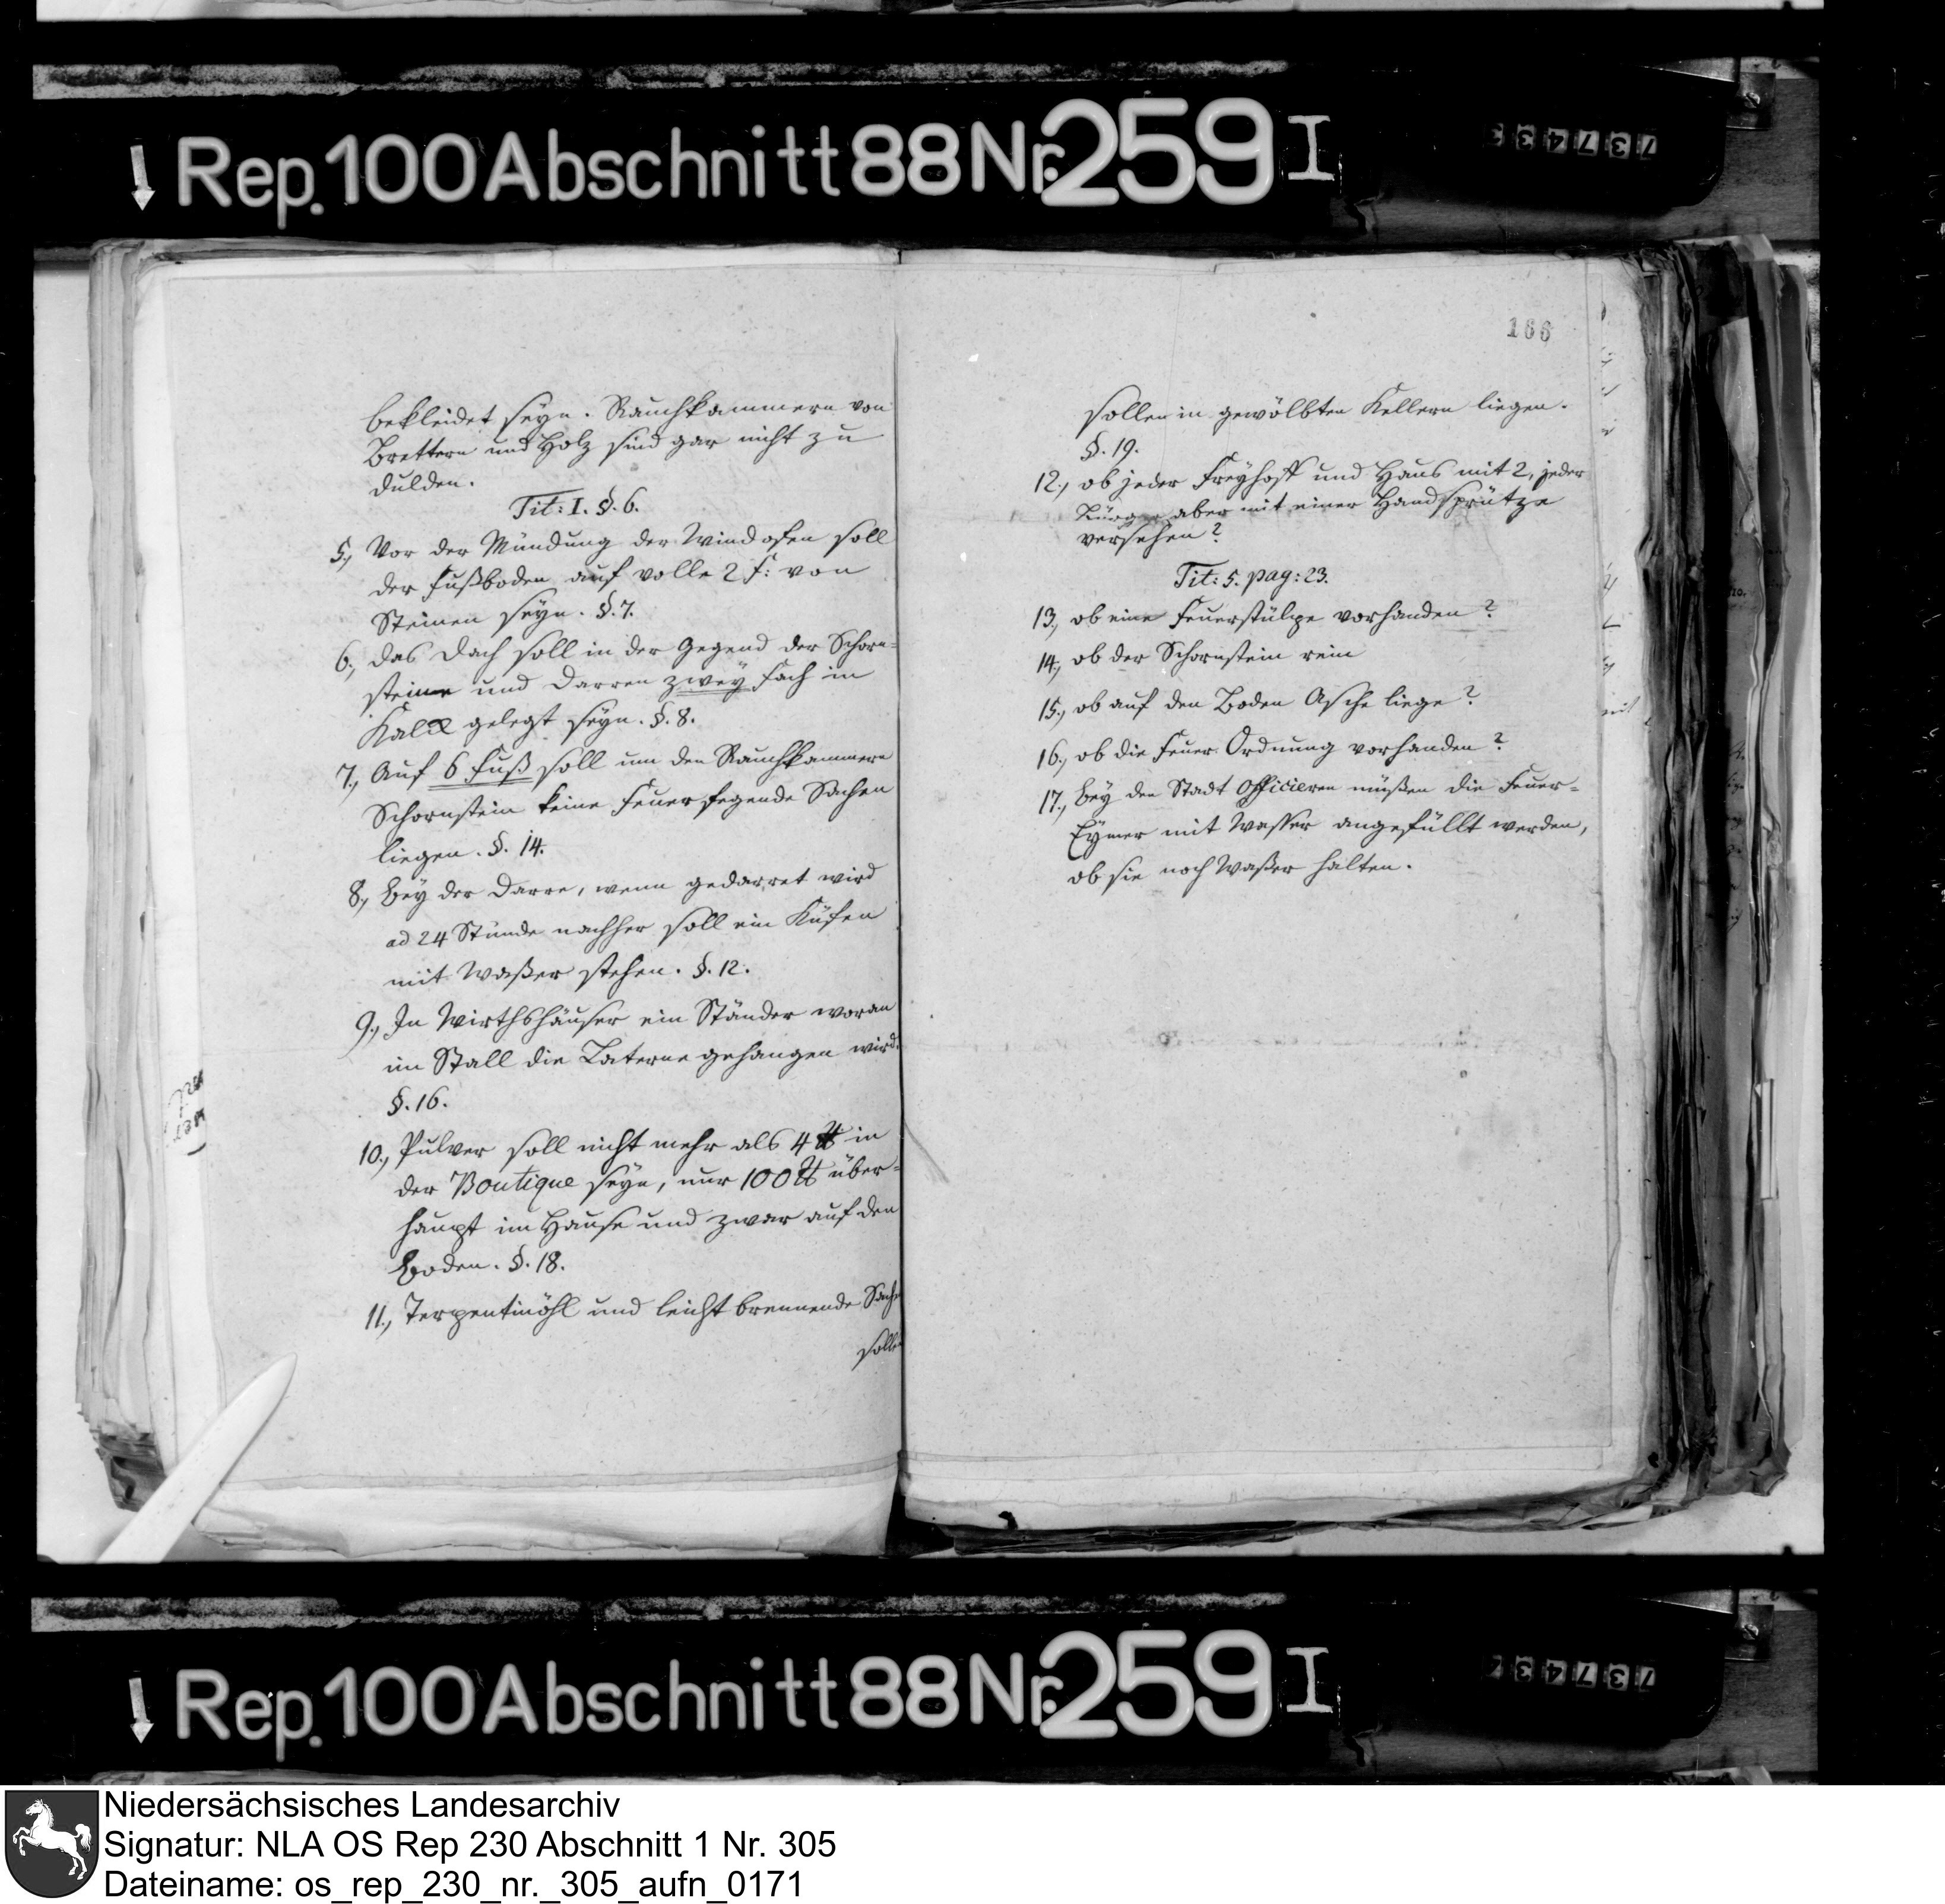 Rep. 100 Abschnitt 88 Nr. 259 I
737433
bekleidet seyn. Rauchkammern von
Brettern und Holz sind gar nicht zu
dulden.
Tit: I. §. 6.
5., Vor der Mündung der Windofen soll
der Fußboden auf volle 2 f: von
Steinen seyn. §. 7.
6., das Dach soll in der Gegend der Schorn-
steine und Darren zwey fach in
Kalck gelegt seyn. §. 8.
7., Auf 6 Fuß soll um den Rauchkammern
Schornstein keine Feuer fegende Sachen
liegen. §. 14.
8., Bey der Darre, wenn gedarret wird
ad 24 Stunde nachher soll ein Küfen
mit Waßer stehen. §. 12.
9., In Wirthshäuser ein Ständer woran
im Stall die Laterne gehangen wird.
§. 16.
10., Pulver soll nicht mehr als 4 ℔ in
der Boutique seyn, nur 100 ℔ über-
haupt im Hause und zwar auf den
Boden. §. 18.
11., Terpentinöhl und leicht brennende Sachen
sollen
166
sollen in gewölbten Kellern liegen.
§. 19.
12., ob jeder Freyhoff und Haus mit 2, jeder
Bürger aber mit einer Handsprütze
versehen?
Tit: 5. pag: 23.
13., ob eine Feuerstülpe vorhanden?
14., ob der Schornstein rein
15., ob auf den Boden Asche liege?
16., ob die Feuer Ordnung vorhanden?
17., Bey den Stadt Officieren müßen die Feuer-
Eymer mit Wasser angefüllt werden,
ob sie noch Waßer halten.
Rep. 100 Abschnitt 88 Nr. 259 I
Niedersächsisches Landesarchiv
Signatur: NLA OS Rep 230 Abschnitt 1 Nr. 305
Dateiname: os_rep_230_nr._305_aufn_0171